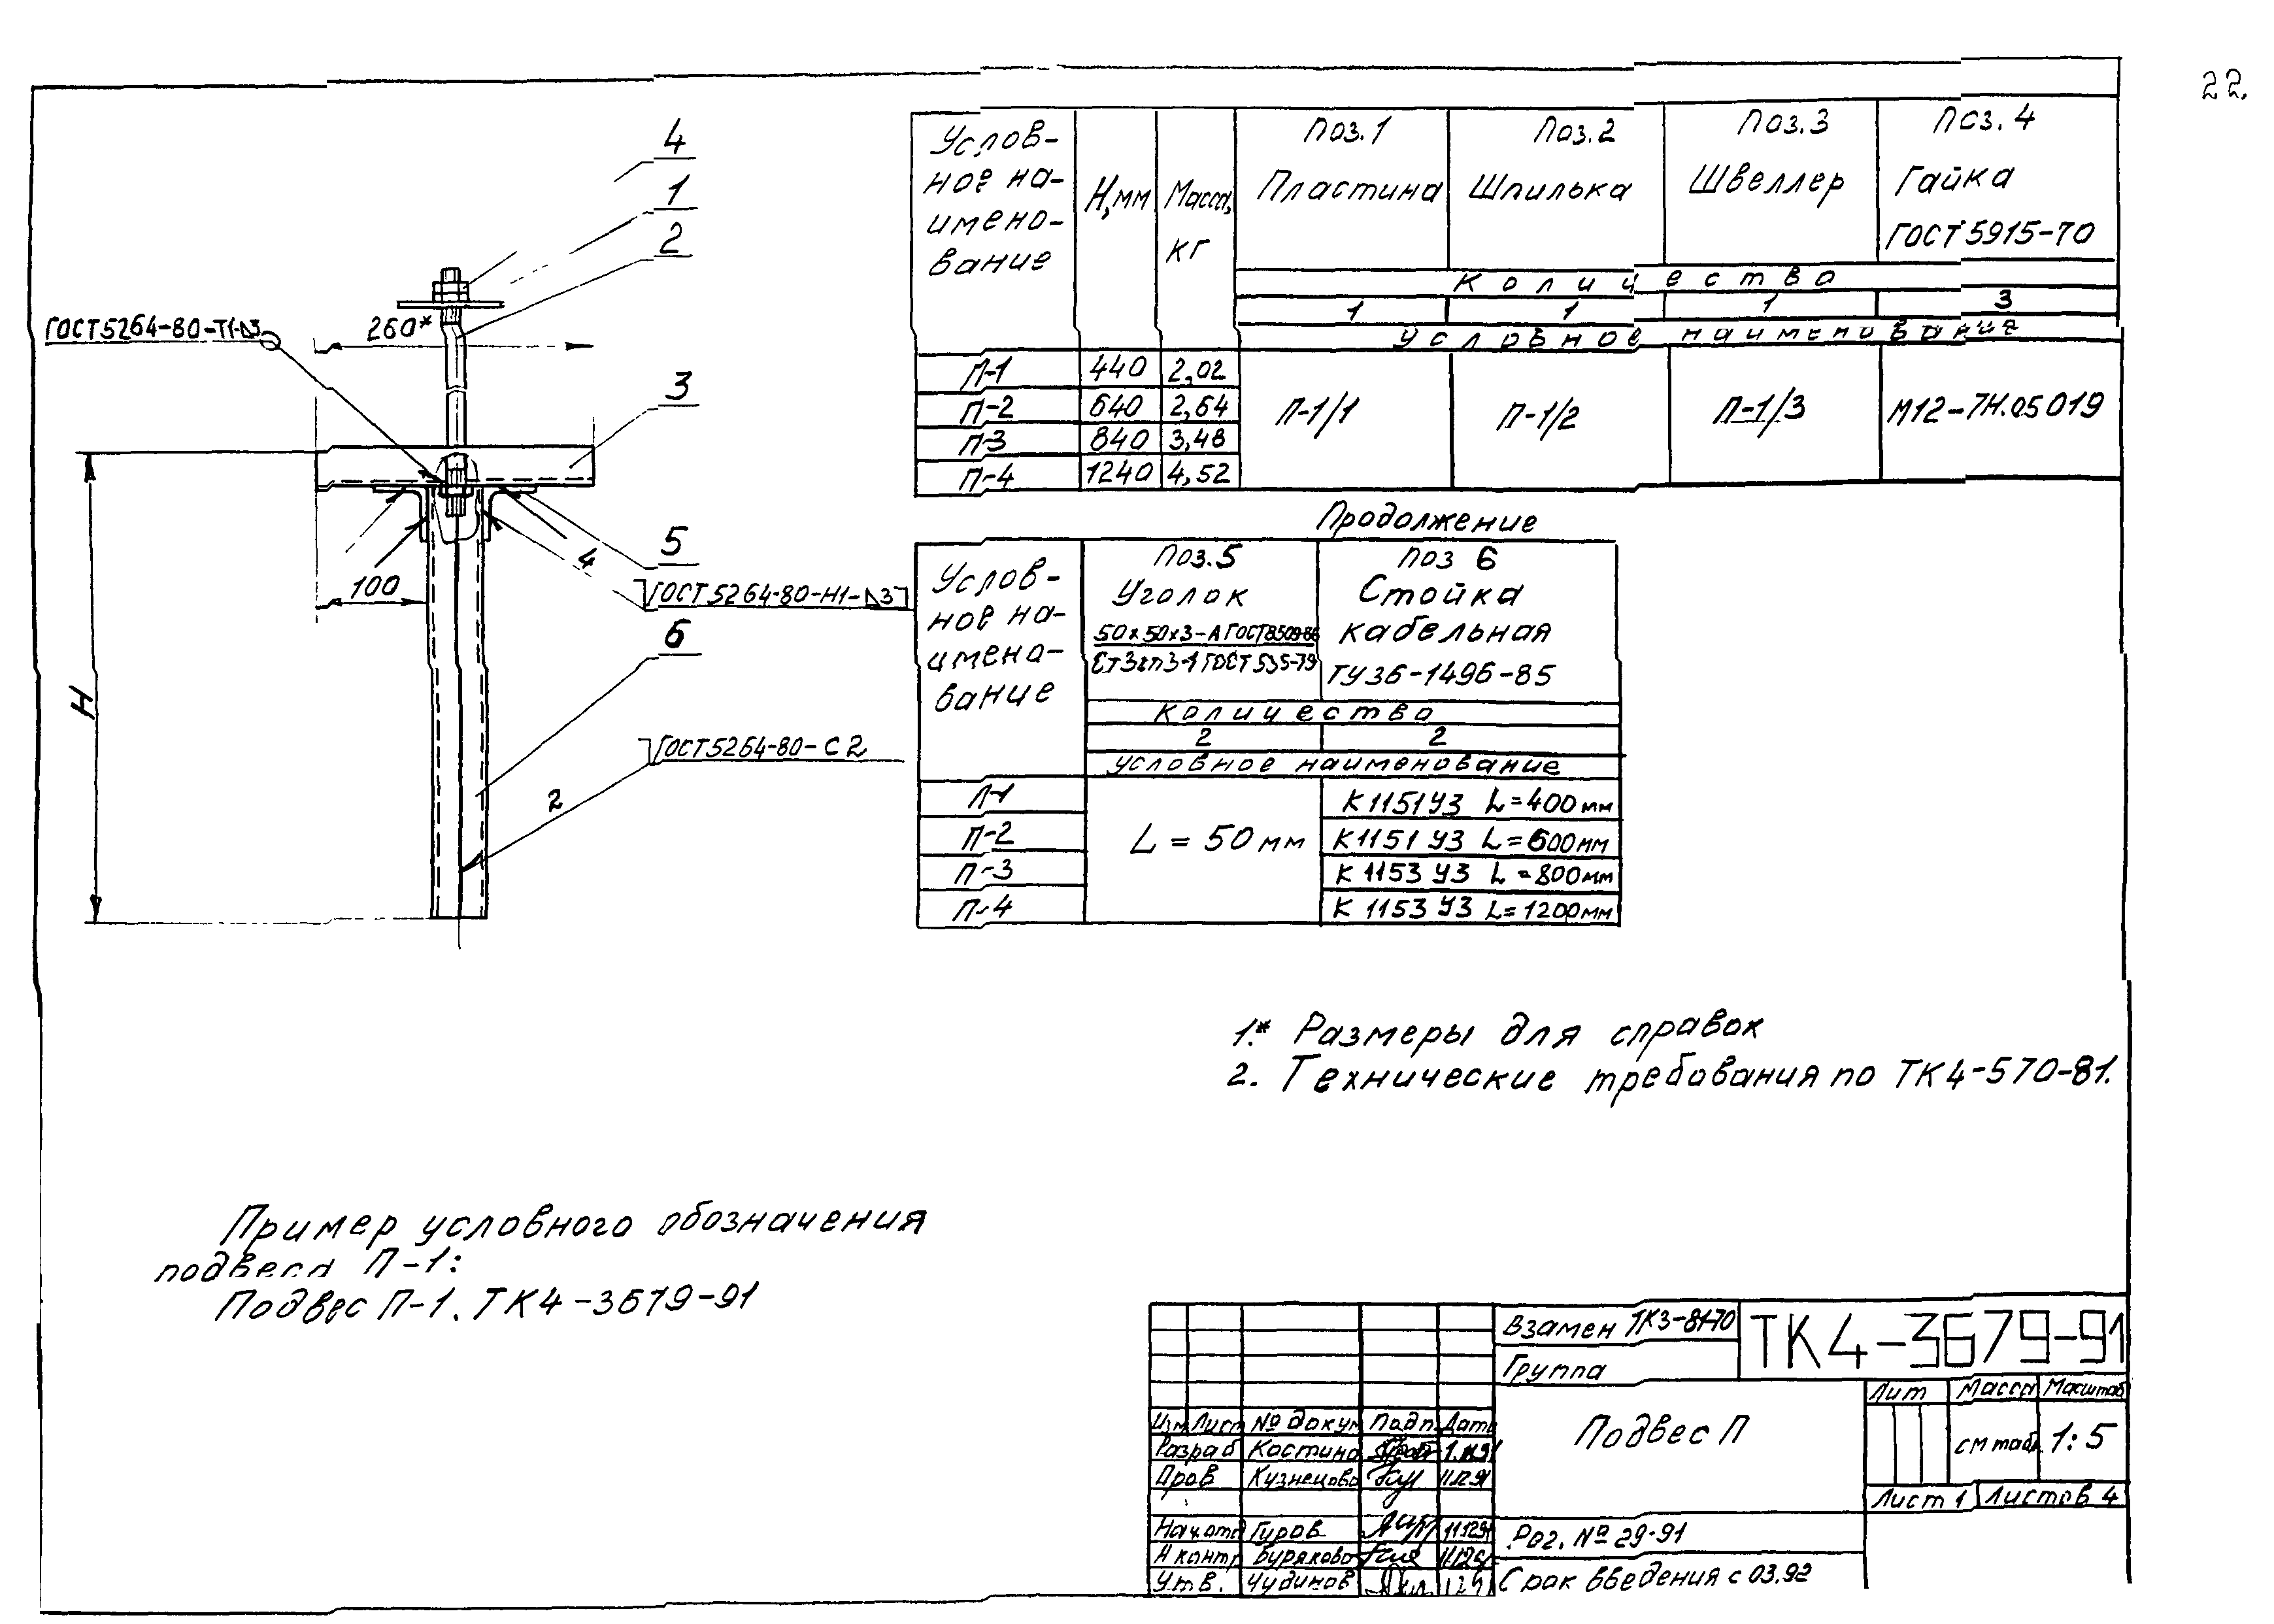 22.
4
1
2
ГОСТ 5264-80-Т1-⊿3
260*
3
5
4
100
ГОСТ 5264-80-Н1-⊿3
6
H
ГОСТ 5264-80-С2
2
Условное наименование
H, мм
Масса, кг
Поз. 1 Пластина
Поз. 2 Шпилька
Поз. 3 Швеллер
Поз. 4 Гайка ГОСТ 5915-70
Количество
1 1 1 3
Условное наименование
П-1 440 2,02
П-2 640 2,64
П-3 840 3,48
П-4 1240 4,52
П-1/1 П-1/2 П-1/3 М12-7Н.05 019
Продолжение
Условное наименование
Поз. 5 Уголок
50х50х3-А ГОСТ 8509-86
Ст3сп3-1 ГОСТ 535-79
Поз 6 Стойка кабельная ТУ36-1496-85
Количество
2 2
Условное наименование
П-1 К1151У3 L=400мм
П-2 К1151У3 L=600мм
П-3 К1153У3 L=800мм
П-4 К1153У3 L=1200мм
L = 50 мм
1.* Размеры для справок
2. Технические требования по ТК4-570-81.
Пример условного обозначения
подвеса П-1:
Подвес П-1. ТК4-3679-91
Взамен ТК3-81-70
ТК4-3679-91
Группа
Подвес П
Лит Масса Масштаб
см табл 1:5
Лист 1 Листов 4
Изм Лист № докум Подп Дата
Разраб Костина
Пров Кузнецова 11.12.91
Нач.отд Гуров 11.12.91
Н контр Бурякова
Утв. Чудинов
Рег. № 29-91
Срок введения с 03.92